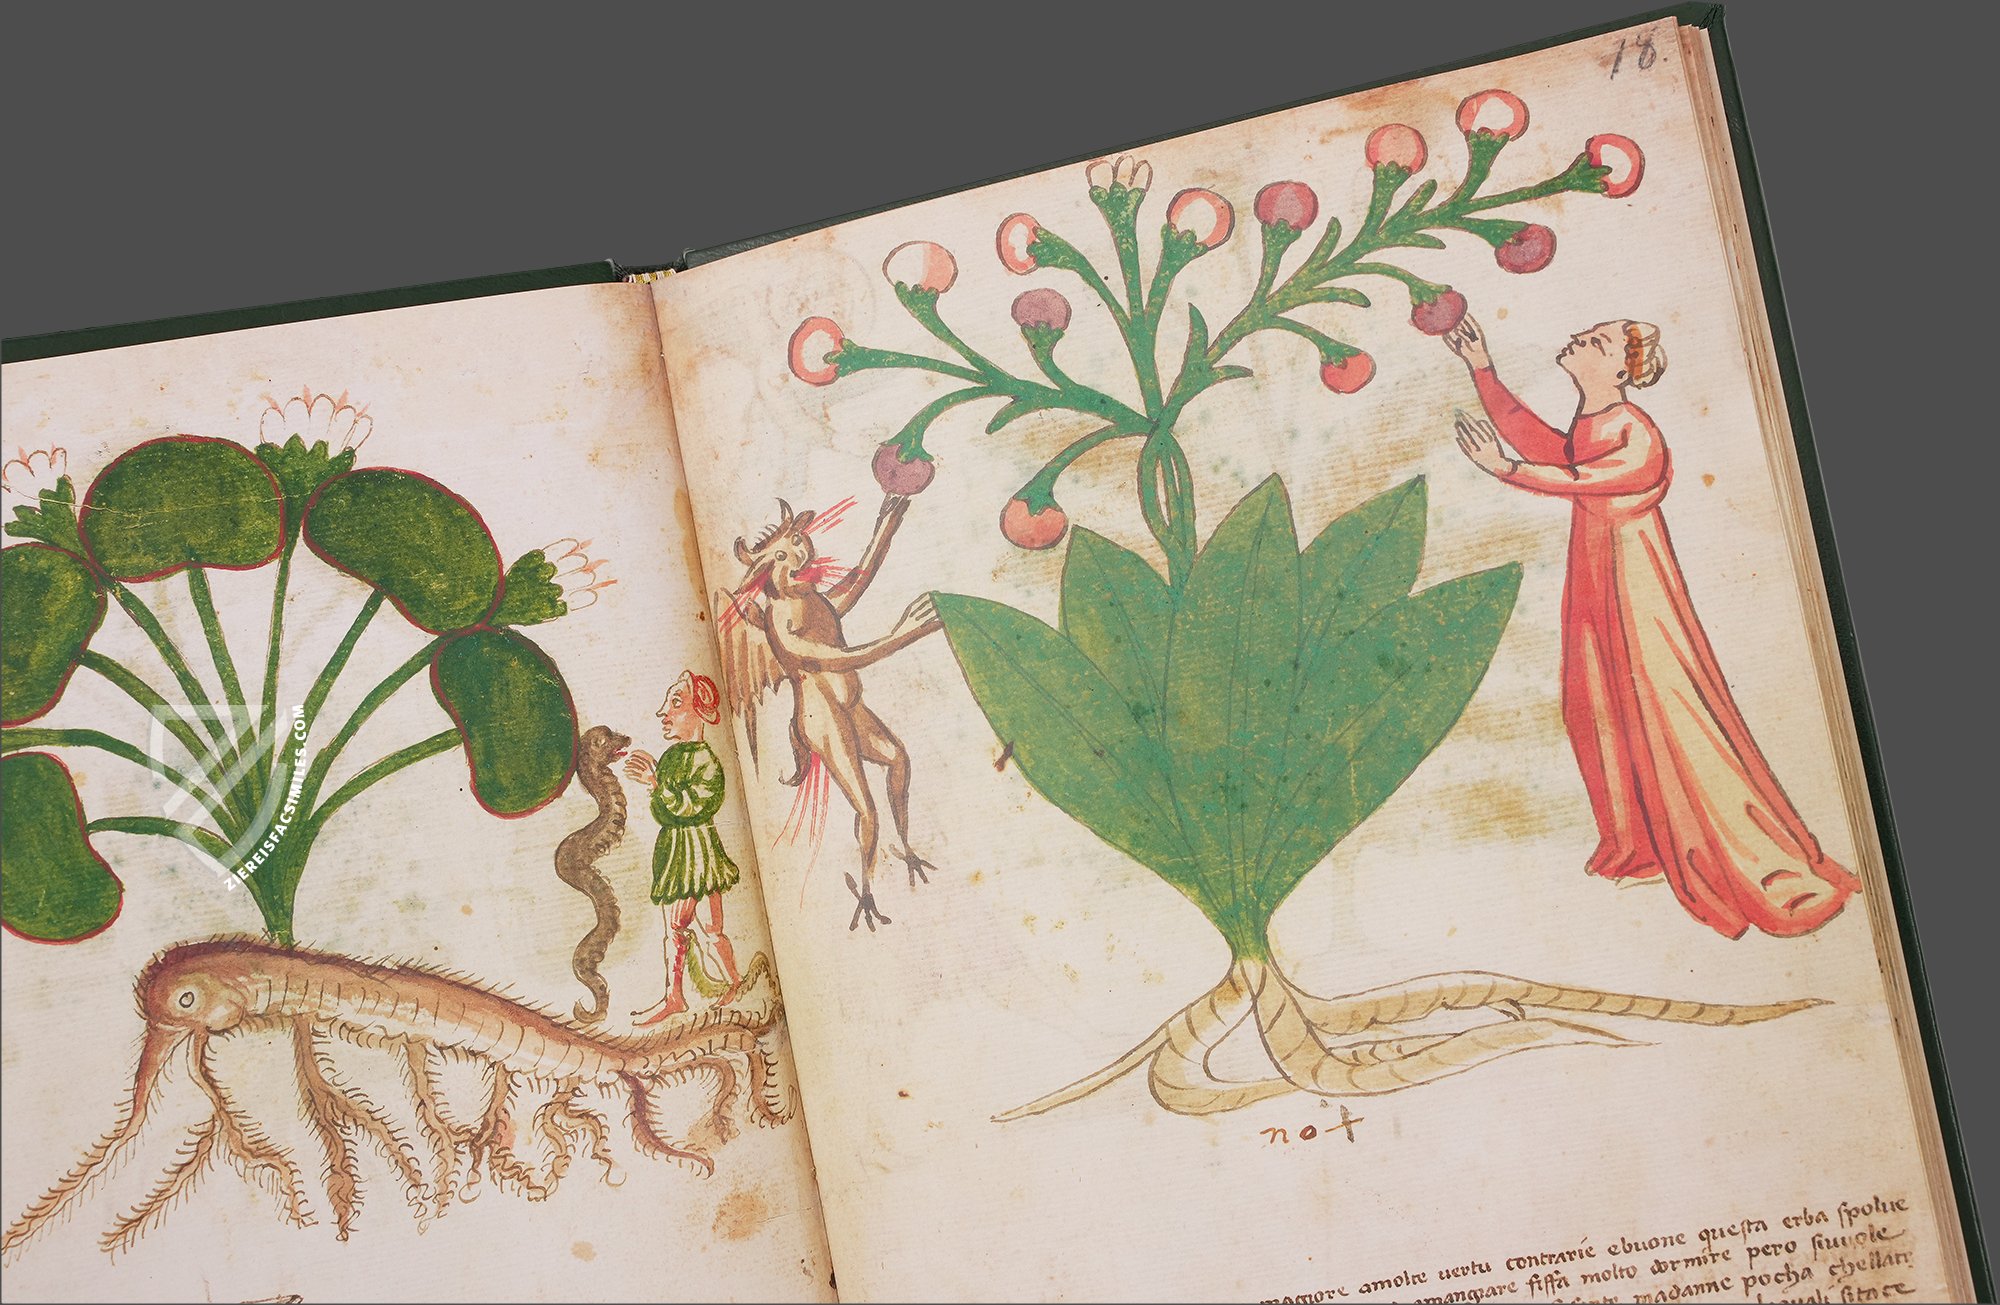 18.
ZIEREISFACSIMILES.COM
not
maggiore amolte vertu contrarie ebuone questa erba spolve
amangiare fiffa molto dormire pero sivuole
madanne pocha chellatt
sitace